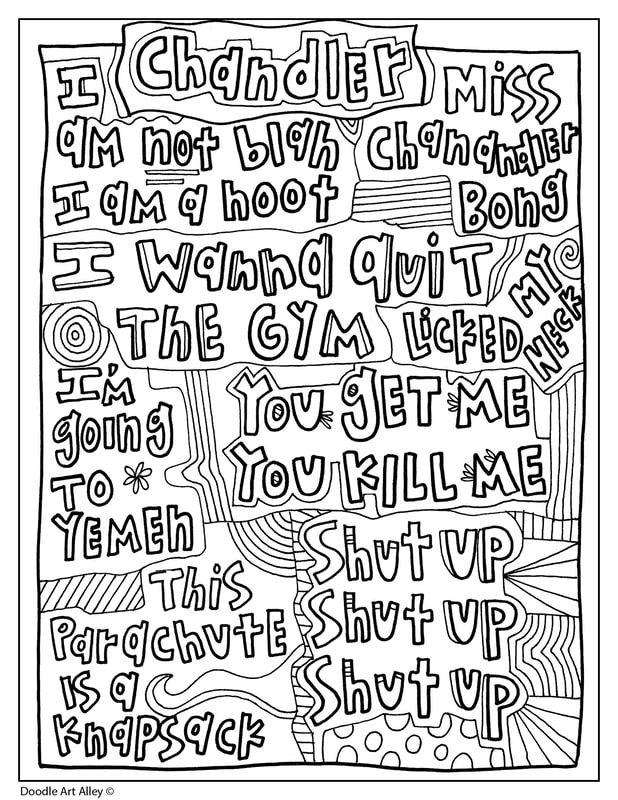 Chandler
I
am not blah
I am a hoot
Miss
Chanandler
Bong
I wanna quit
The GYM
Licked
My
Neck
I'm
going
To
Yemen
You get me
You kill me
This
Parachute
is a
knapsack
Shut up
Shut up
Shut up
Doodle Art Alley ©